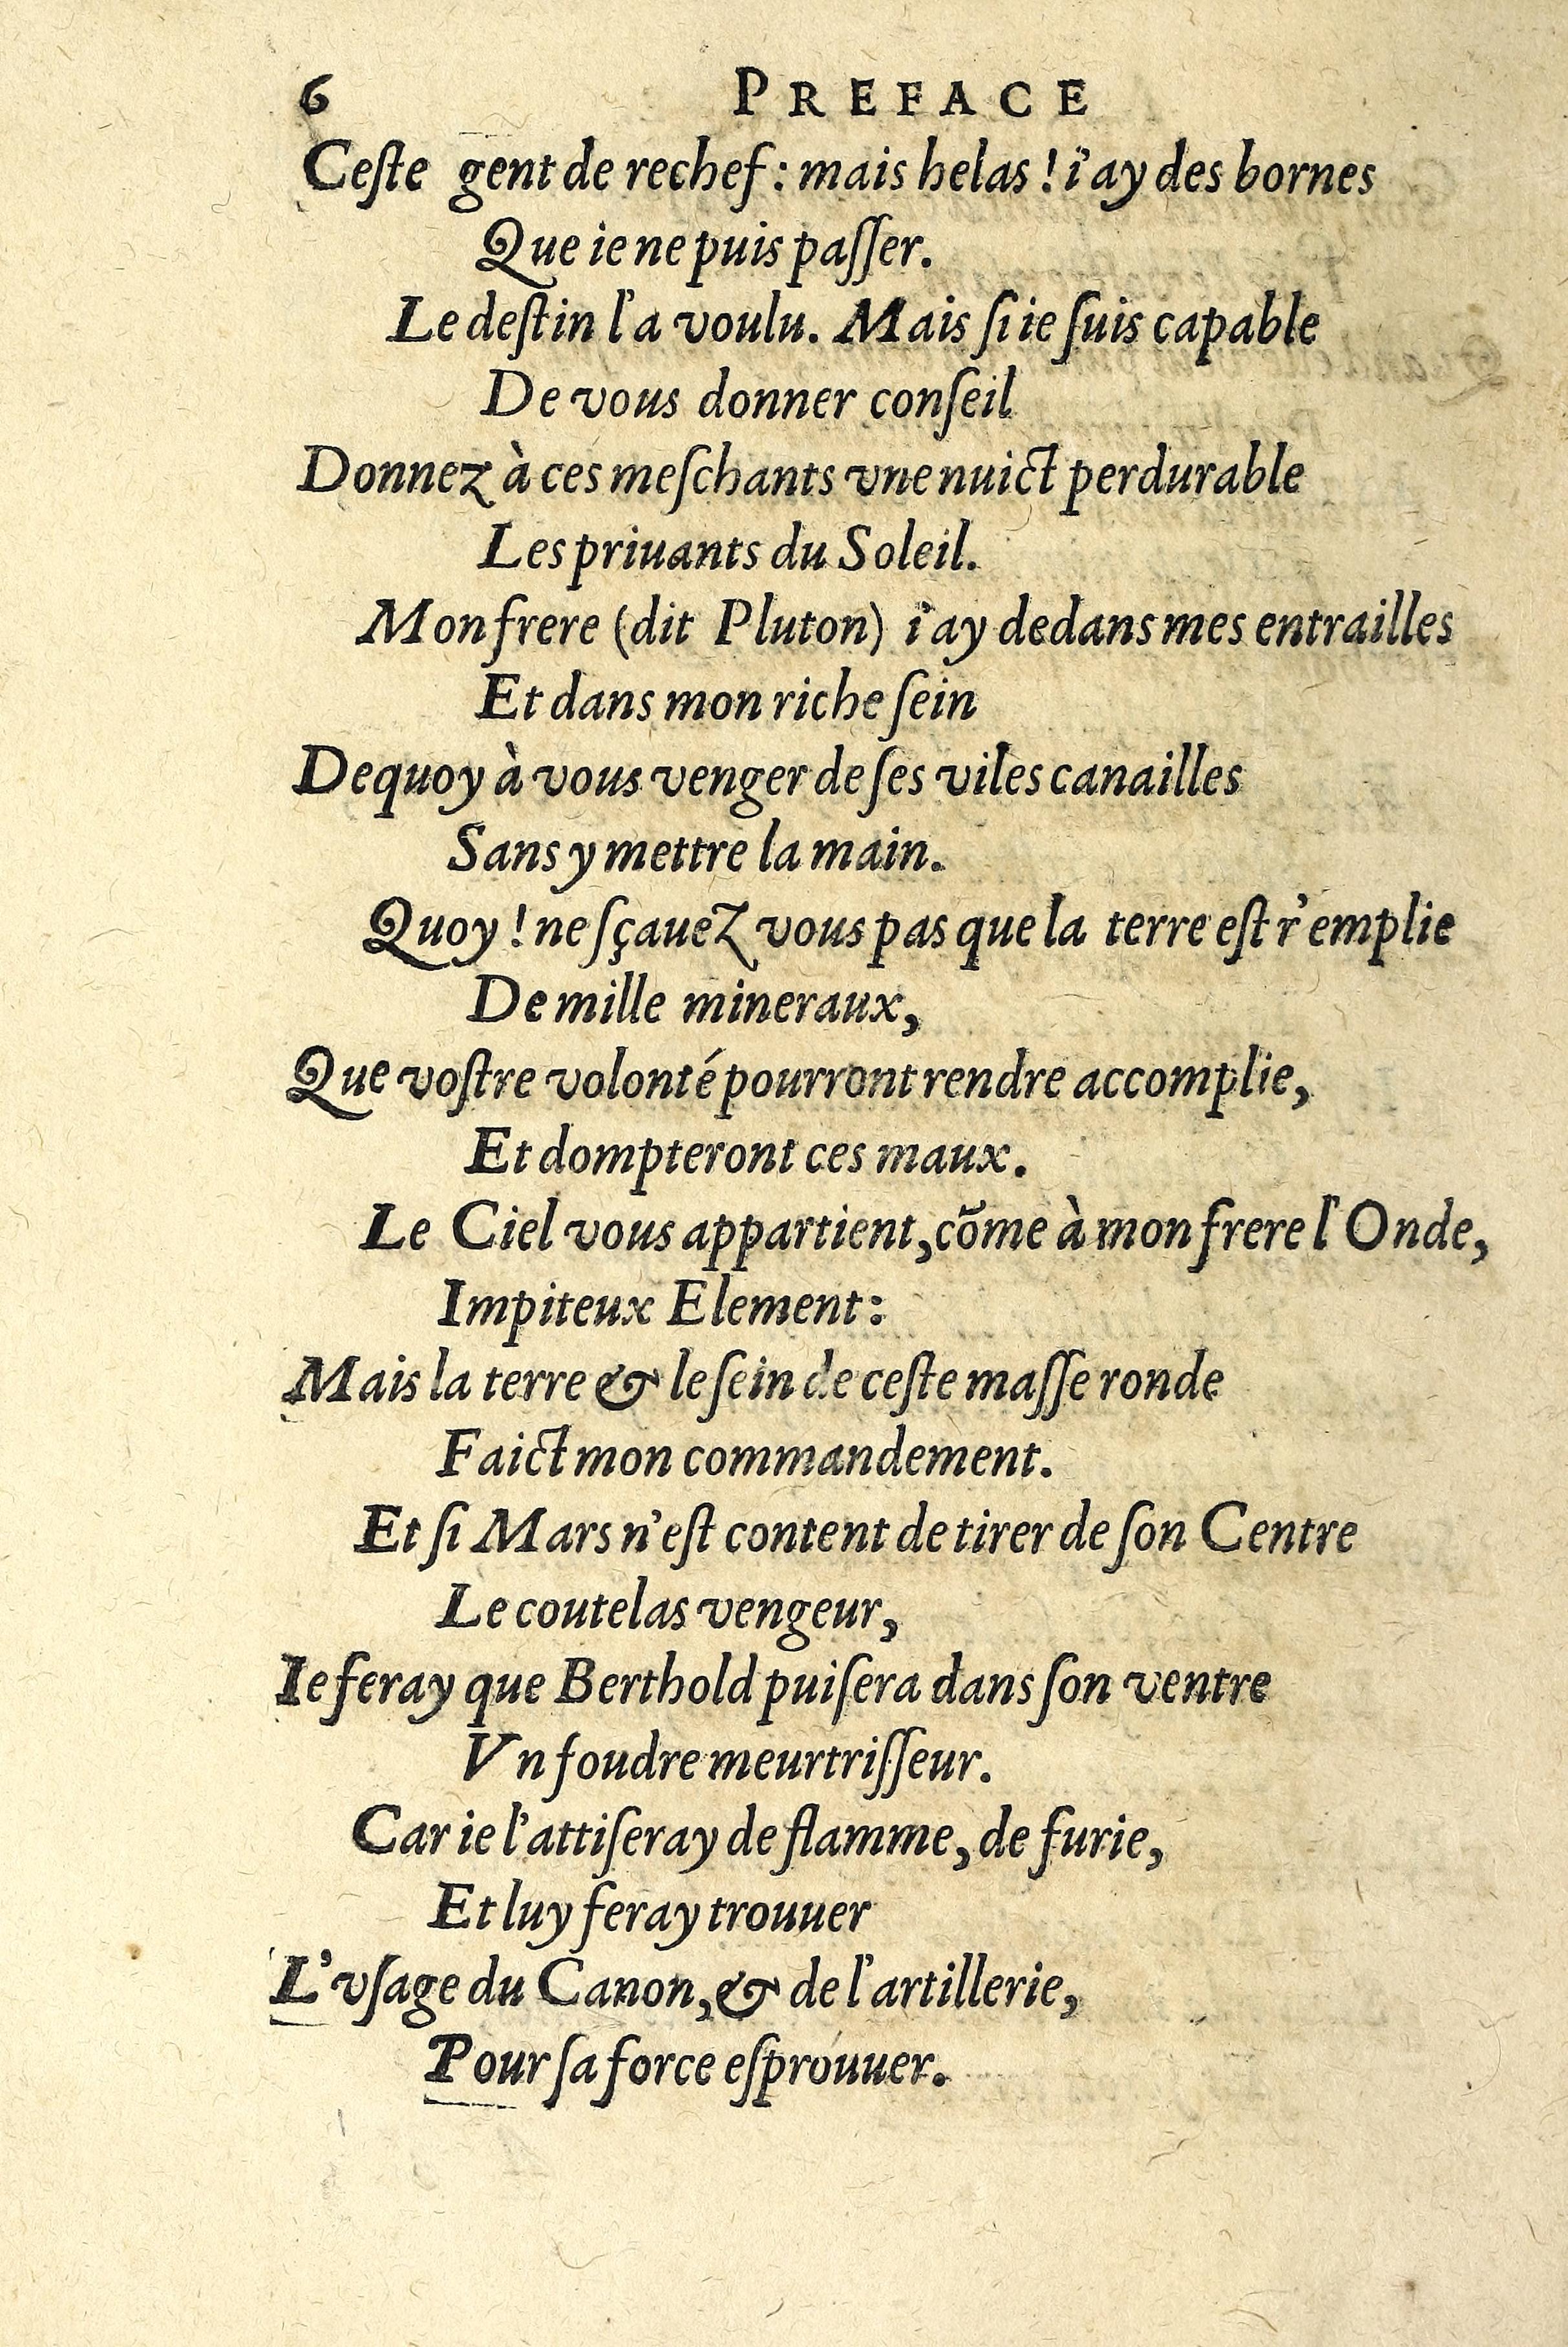 6 PREFACE
Ceſte gent de rechef : mais helas ! i'ay des bornes
Que ie ne puis paſſer.
Le deſtin l'a voulu. Mais ſi ie ſuis capable
De vous donner conſeil
Donnez à ces meſchants vne nuict perdurable
Les priuants du Soleil.
Mon frere (dit Pluton) i'ay dedans mes entrailles
Et dans mon riche ſein
Dequoy à vous venger de ſes viles canailles
Sans y mettre la main.
Quoy ! ne ſçauez vous pas que la terre eſt r'emplie
De mille mineraux,
Que voſtre volonté pourront rendre accomplie,
Et dompteront ces maux.
Le Ciel vous appartient, cõme à mon frere l'Onde,
Impiteux Element :
Mais la terre & le ſein de ceſte maſſe ronde
Faict mon commandement.
Et ſi Mars n'eſt content de tirer de ſon Centre
Le coutelas vengeur,
Ie feray que Berthold puiſera dans ſon ventre
Vn foudre meurtriſſeur.
Car ie l'attiſeray de flamme, de furie,
Et luy feray trouuer
L'vſage du Canon, & de l'artillerie,
Pour ſa force eſprouuer.